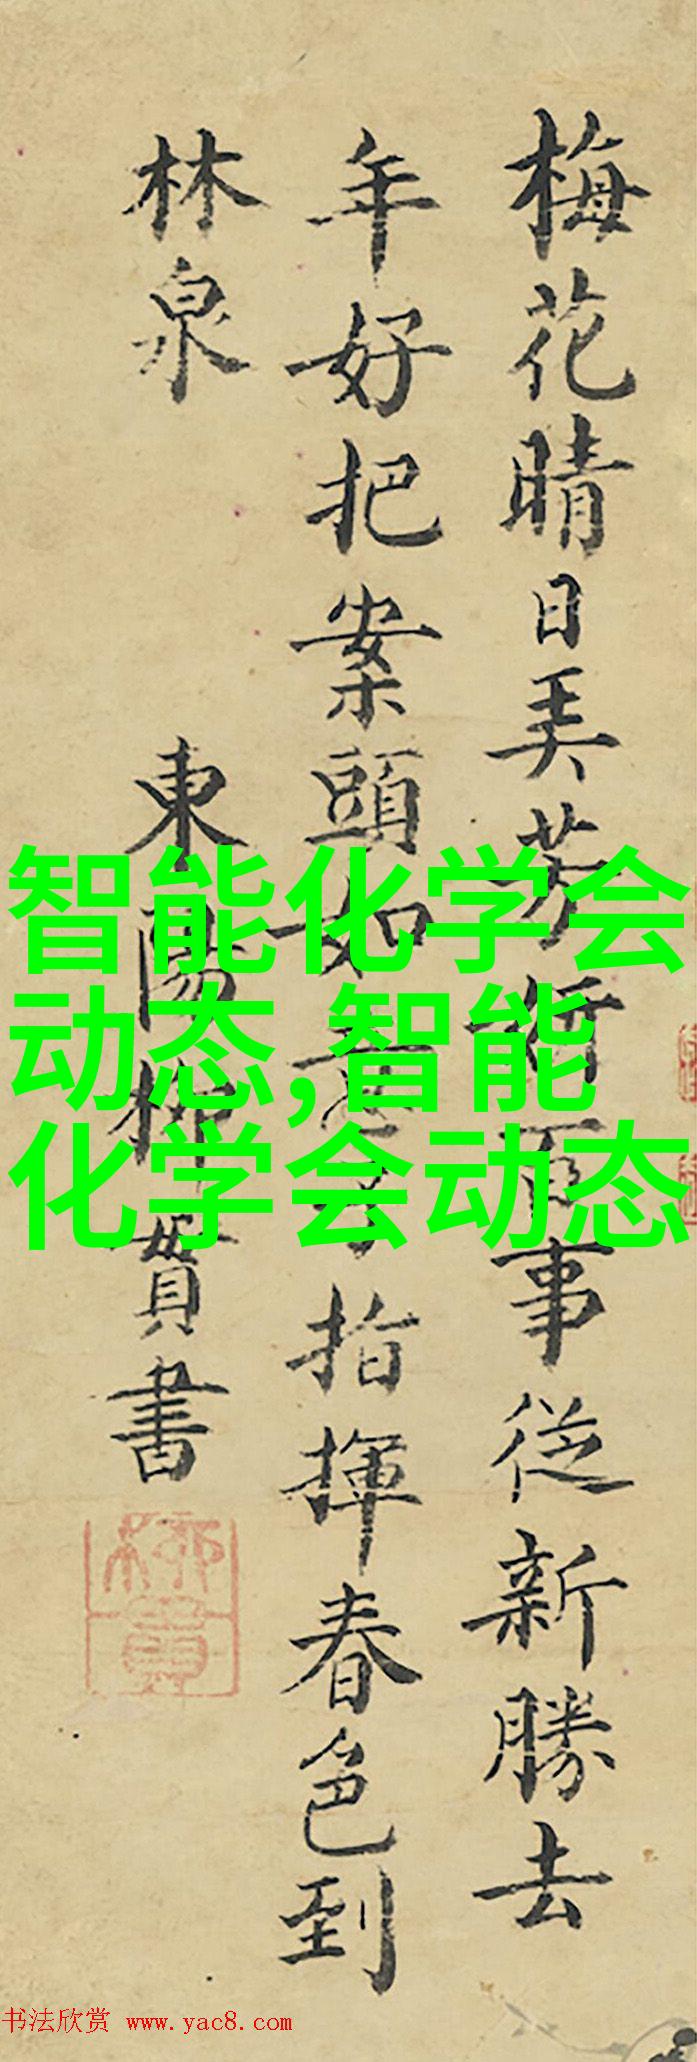 梅花晴日美芬
百事從新勝去
年好把案頭如
指揮春色到
林泉
東陽柳貫書
柳貫
智能化学会
动态,智能
化学会动态
书法欣赏 www.yac8.com